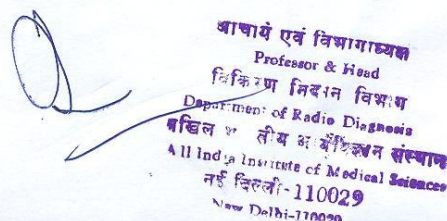 आचार्य एवं विभागाध्यक्ष
Professor & Head
विकिरण निदान विभाग
Department of Radio Diagnosis
अखिल भा तीय आ संस्थान
All India Institute of Medical Sciences
नई दिल्ली-110029
New Delhi-110029